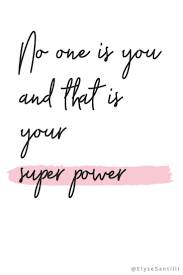 No one is you
and that is
your
super power
@ElyseSantilli